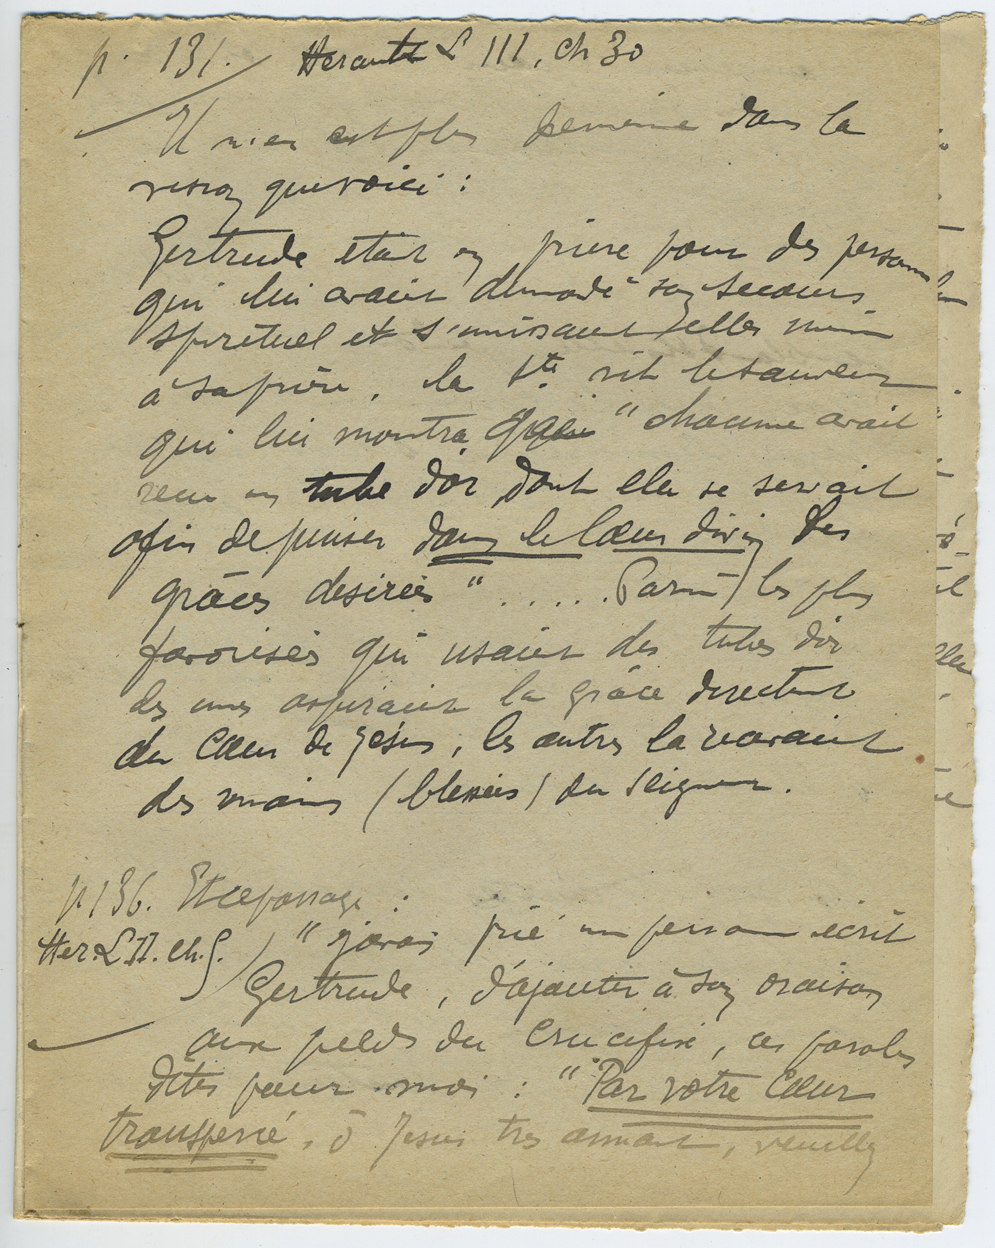 p. 131. Heraut L III, ch 30
Il n'en est plus de même dans la
vision que voici :
Gertrude était en prière pour des personnes
qui lui avaient demandé son secours
spirituel et s'unissant elles même
à sa prière, la Ste vit le Sauveur
qui lui montra que " chacune avait
reçu un tube d'or dont elle se servait
afin de puiser dans le Cœur divin les
grâces desirées " ..... Parmi les plus
favorisés qui usaient des tubes d'or
les unes aspiraient la grâce directement
du Cœur de Jésus, les autres la recevaient
des mains (blessées) du Seigneur.
p. 136. Et ce passage :
Her. L II. ch. 5. ) " J'avais prié une personne écrit
Gertrude, d'ajouter à son oraison
aux pieds du Crucifix, ces paroles
dites pour moi : " Par votre Cœur
transpercé, ô Jesus très aimant, veuillez